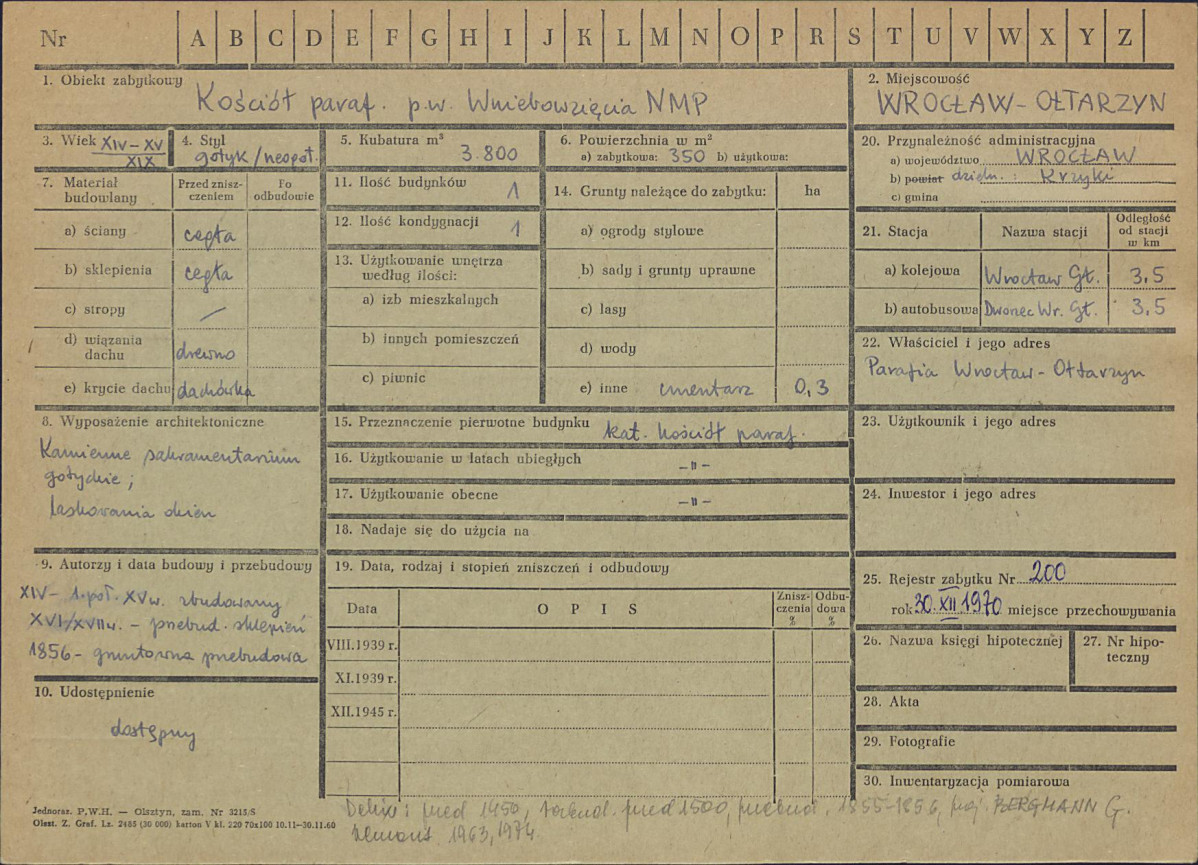 Nr A B C D E F G H I J K L M N O P R S T U V W X Y Z
1. Obiekt zabytkowy
Kościół paraf. p.w. Wniebowzięcia NMP
2. Miejscowość
WROCŁAW - OŁTARZYN
3. Wiek XIV - XV
XIX
4. Styl
gotyk / neogot.
5. Kubatura m³
3.800
6. Powierzchnia w m²
a) zabytkowa: 350 b) użytkowa:
7. Materiał budowlany
Przed zniszczeniem
Po odbudowie
a) ściany cegła
b) sklepienia cegła
c) stropy —
d) wiązania dachu drewno
e) krycie dachu dachówka
8. Wyposażenie architektoniczne
Kamienne sakramentarium
gotyckie ;
laskowania okien
9. Autorzy i data budowy i przebudowy
XIV - 1. poł. XV w. zbudowany
XVI/XVII w. - przebud. sklepień
1856 - gruntowna przebudowa
10. Udostępnienie
dostępny
11. Ilość budynków 1
12. Ilość kondygnacji 1
13. Użytkowanie wnętrza
według ilości:
a) izb mieszkalnych
b) innych pomieszczeń
c) piwnic
14. Grunty należące do zabytku: ha
a) ogrody stylowe
b) sady i grunty uprawne
c) lasy
d) wody
e) inne cmentarz 0,3
15. Przeznaczenie pierwotne budynku kat. kościół paraf.
16. Użytkowanie w latach ubiegłych - " -
17. Użytkowanie obecne - " -
18. Nadaje się do użycia na
19. Data, rodzaj i stopień zniszczeń i odbudowy
Data OPIS Zniszczenia % Odbudowa %
VIII.1939 r.
XI.1939 r.
XII.1945 r.
20. Przynależność administracyjna
a) województwo WROCŁAW
b) powiat dzieln. : Krzyki
c) gmina
21. Stacja Nazwa stacji Odległość od stacji w km
a) kolejowa Wrocław Gł. 3,5
b) autobusowa Dworzec Wr. Gł. 3,5
22. Właściciel i jego adres
Parafia Wrocław - Ołtarzyn
23. Użytkownik i jego adres
24. Inwestor i jego adres
25. Rejestr zabytku Nr 200
rok 30.XII.1970 miejsce przechowywania
26. Nazwa księgi hipotecznej
27. Nr hipoteczny
28. Akta
29. Fotografie
30. Inwentaryzacja pomiarowa
Jednoraz. P.W.H. — Olsztyn, zam. Nr 3215/S
Olszt. Z. Graf. Lz. 2485 (30 000) karton V kl. 220 70x100 10.11—30.11.60
przed 1450, przed 1500, przebud. 1855-1856, proj. BERGMANN G.
Remont 1963, 1974